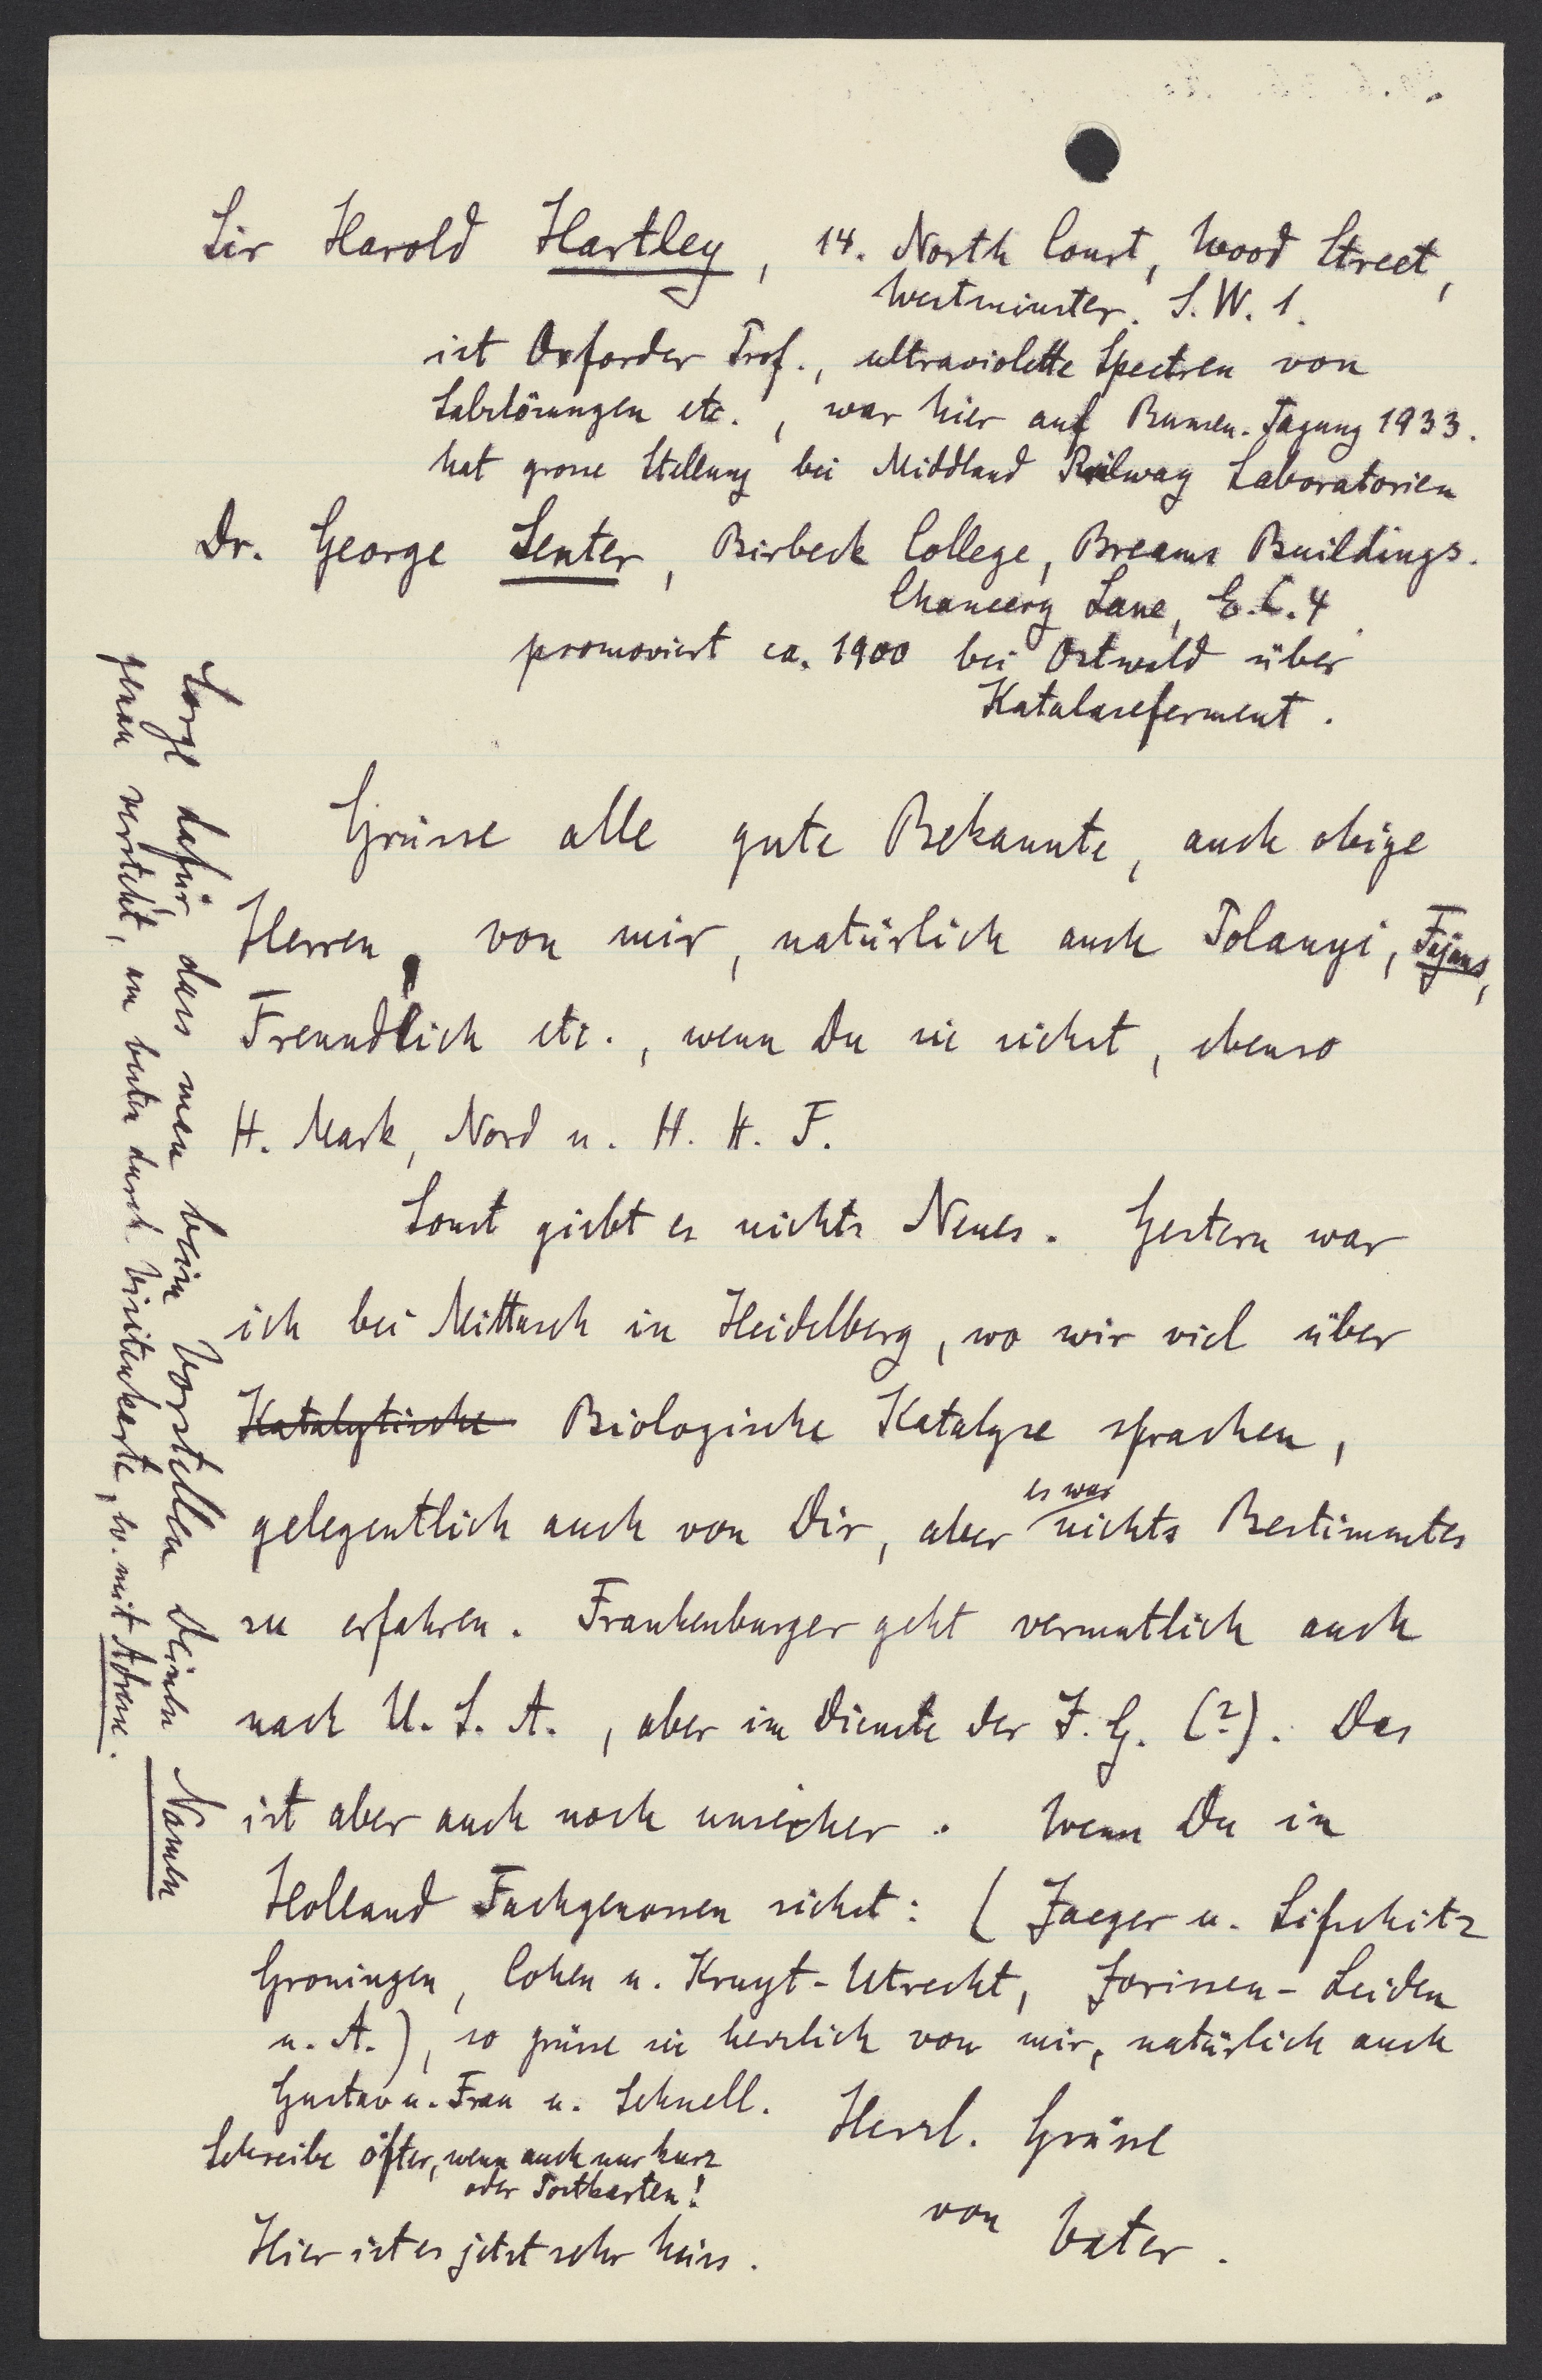 Sir Harold Hartley, 14. North Court, Wood Street,
Westminster. S.W.1.
ist Oxforder Prof., ultraviolette Spectren von
Salzlösungen etc., war hier auf Bunsen-Tagung 1933.
hat grosse Stellung bei Middland Railway Laboratorien
Dr. George Senter, Birbeck College, Breams Buildings.
Chancery Lane, E.C.4.
promoviert ca. 1900 bei Ostwald über
Katalaseferment.
Grüsse alle gute Bekannte, auch obige
Herren, von mir, natürlich auch Polanyi, Fajans,
Freundlich etc., wenn Du sie siehst, ebenso
H. Mark, Nord u. H. H. F.
Sonst giebt es nichts Neues. Gestern war
ich bei Mittasch in Heidelberg, wo wir viel über
Katalytische Biologische Katalyse sprachen,
gelegentlich auch von Dir, aber es war nichts Bestimmtes
zu erfahren. Frankenburger geht vermutlich auch
nach U.S.A., aber im Dienste der I.G. (?). Das
ist aber auch noch unsicher. Wenn Du in
Holland Fachgenossen siehst: (Jaeger u. Lifschitz
Groningen, Cohen u. Kruyt-Utrecht, Jorissen-Leiden
u. A.), so grüsse sie herzlich von mir, natürlich auch
Gustav u. Frau u. Schnell.
Herzl. Grüsse
von Vater.
Schreibe öfter, wenn auch nur kurz
oder Postkarten!
Hier ist es jetzt sehr heiss.
Sorge dafür, dass man beim Vorstellen Deinen Namen
genau versteht, am besten durch Visitenkarte, ev. mit Adresse.